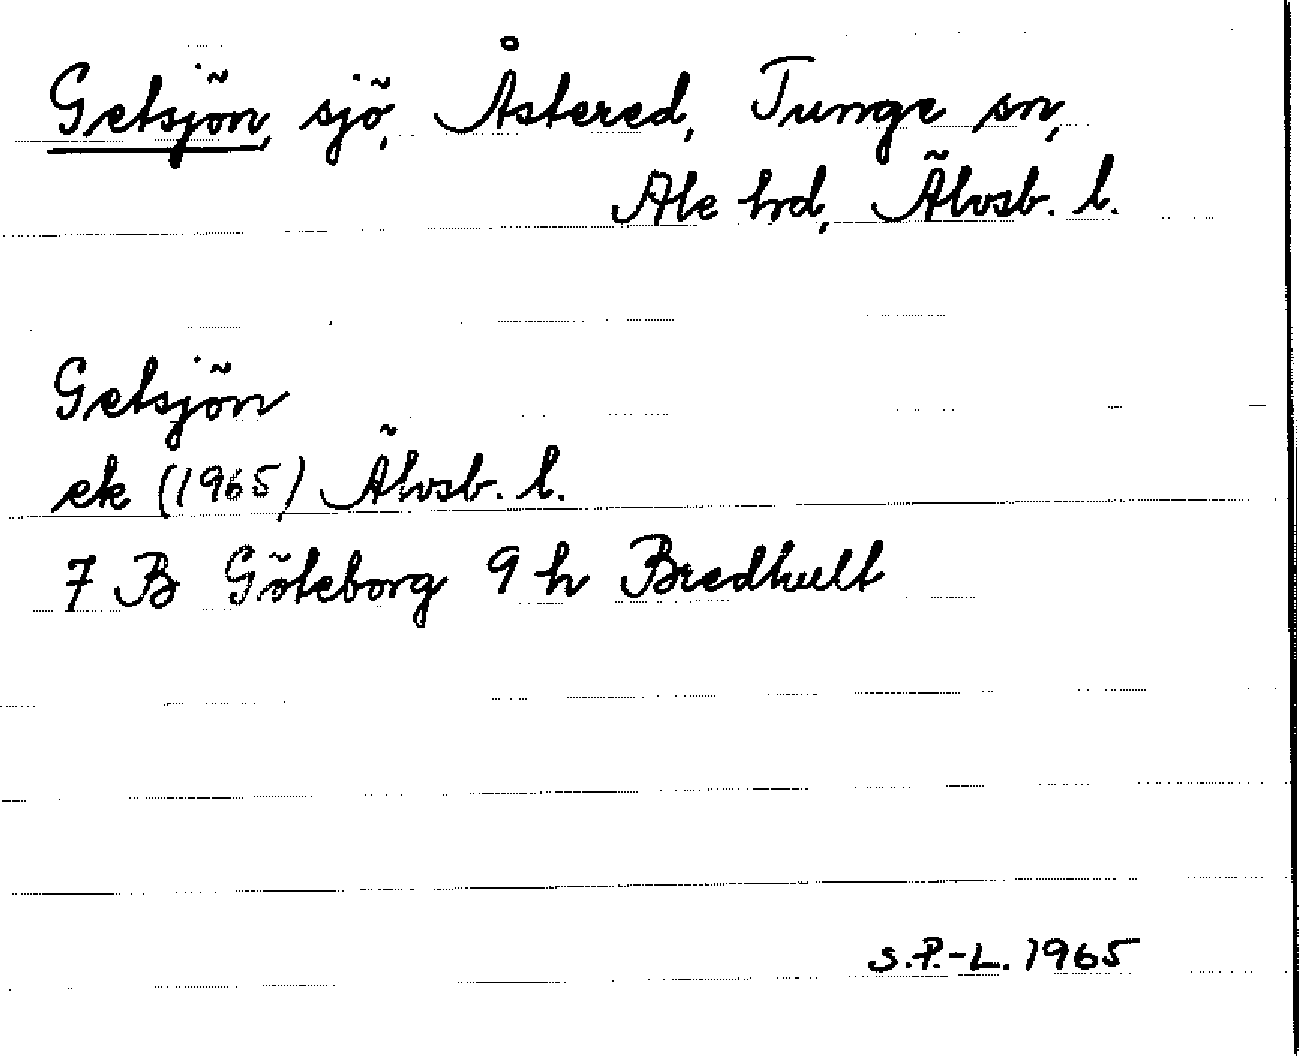 Getsjön, sjö, Åstered, Tunge sn,
Ale hrd, Älvsb. l.
Getsjön
ek (1965) Älvsb. l.
7 B Göteborg 9 h Bredhult
S.P.-L. 1965